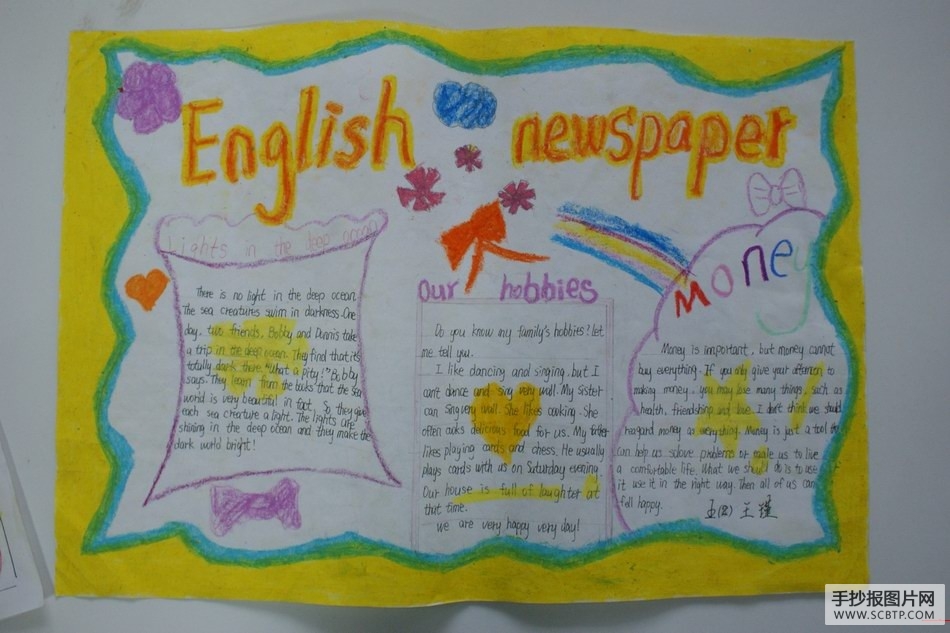 English newspaper
Lights in the deep ocean
There is no light in the deep ocean.
The sea creatures swim in darkness. One
day, two friends, Bobby and Dannis take
a trip in the deep ocean. They find that it's
totally dark there "What a pity!" Bobby
says. They learn from the books that the sea
world is very beautiful in fact. So they give
each sea creature a light. The lights are
shining in the deep ocean and they make the
dark world bright!
our hobbies
Do you know my family's hobbies? let
me tell you.
I like dancing and singing. but I
can't dance and sing very well. My sister
can sing very well. She likes cooking. She
often cooks delicious food for us. My father
likes playing cards and chess. He usually
plays cards with us on Saturday evening.
Our house is full of laughter at
that time.
We are very happy very day!
Money
Money is important, but money cannot
buy everything. If you only give your attention to
making money, you may lose many things, such as
health, friendship and love. I don't think we should
reagard money as everything. Money is just a tool that
can help us solove problems or make us to live
a comfortable life. What we should do is to use
it use it in the right way. Then all of us can
fell happy.
五(2) 王瑾
手抄报图片网
WWW.SCBTP.COM